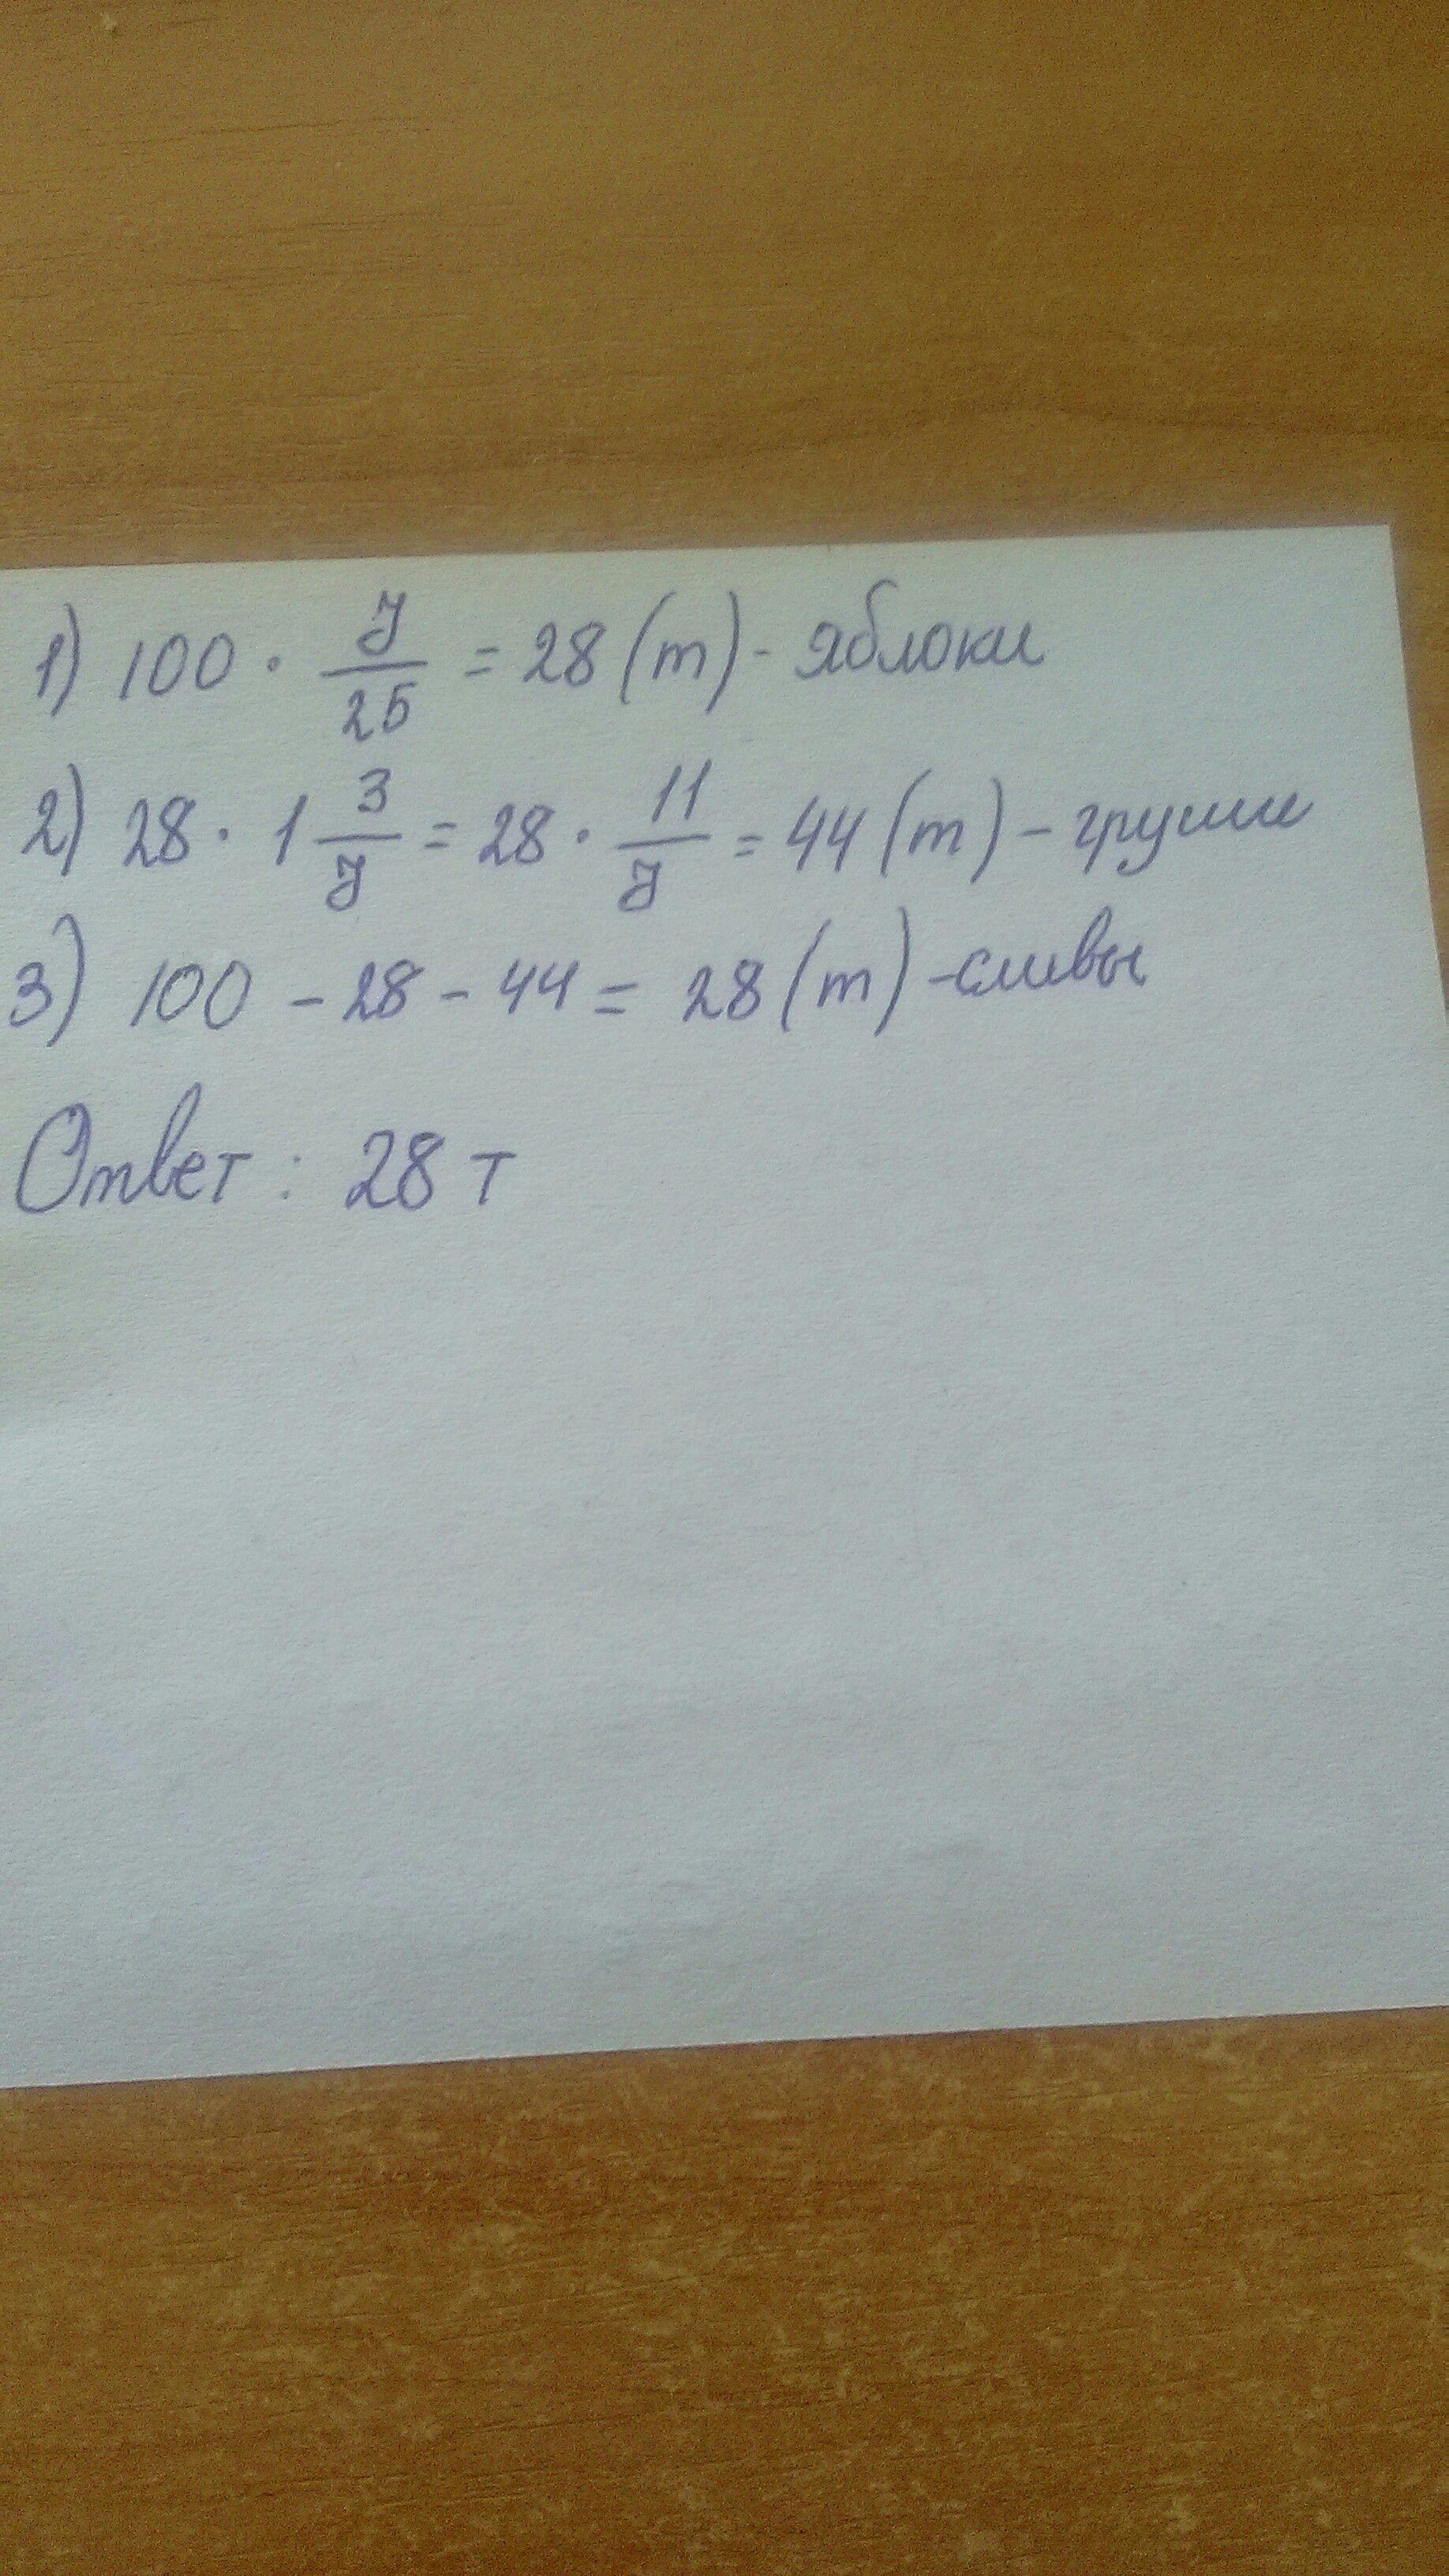 1) 100 · 7/25 = 28 (т) - яблоки
2) 28 · 1 3/7 = 28 · 11/7 = 44 (т) - груши
3) 100 - 28 - 44 = 28 (т) - сливы
Ответ : 28 т